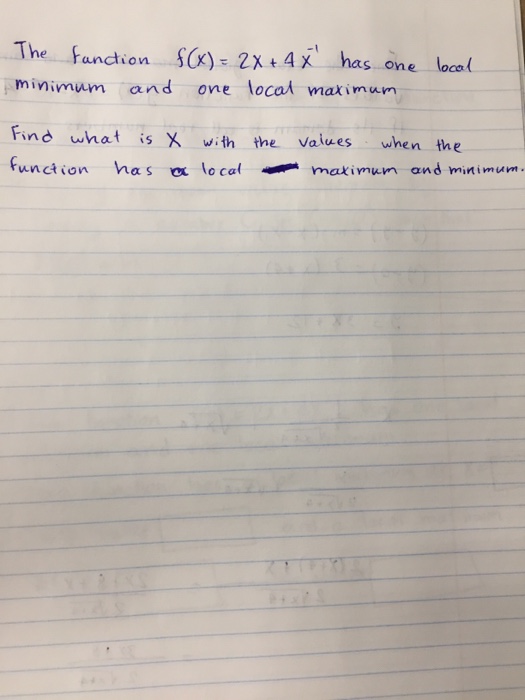 The function f(x) = 2x + 4x⁻¹ has one local
minimum and one local maximum
Find what is X with the values when the
function has a local maximum and minimum.